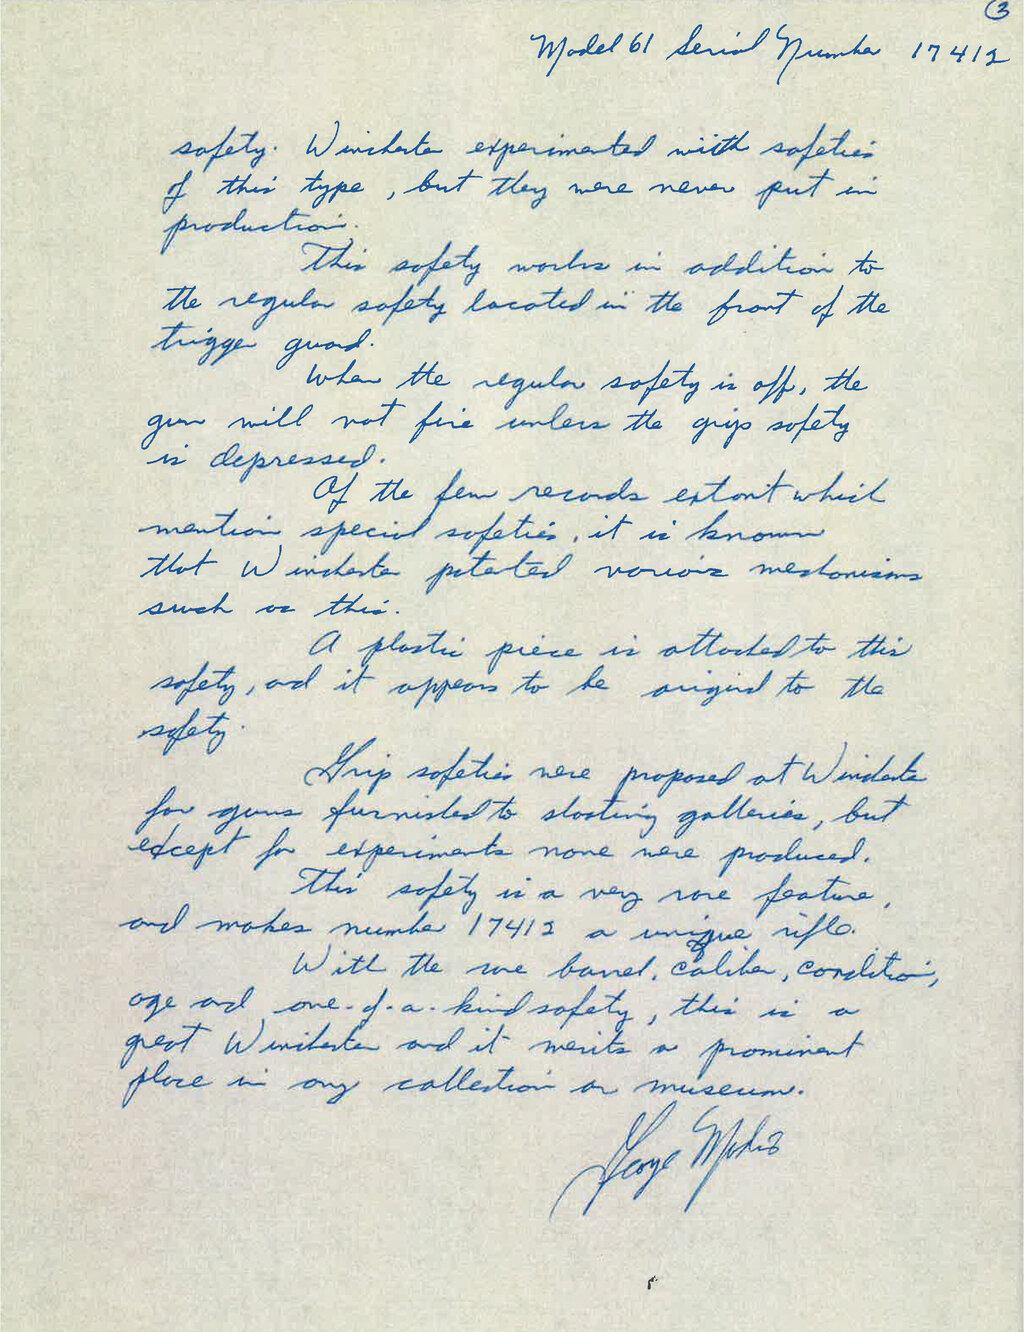 3
Model 61 Serial Number 17412
safety. Winchester experimented with safeties
of this type, but they were never put in
production.
This safety works in addition to
the regular safety located in the front of the
trigger guard.
When the regular safety is off, the
gun will not fire unless the grip safety
is depressed.
Of the few records extant which
mention special safeties, it is known
that Winchester patented various mechanisms
such as this.
A plastic piece is attached to this
safety, and it appears to be original to the
safety.
Grip safeties were proposed at Winchester
for guns furnished to shooting galleries, but
except for experiments none were produced.
This safety is a very rare feature,
and makes number 17412 a unique rifle.
With the rare barrel, caliber, condition,
age and one-of-a-kind safety, this is a
great Winchester and it merits a prominent
place in any collection or museum.
George Madis